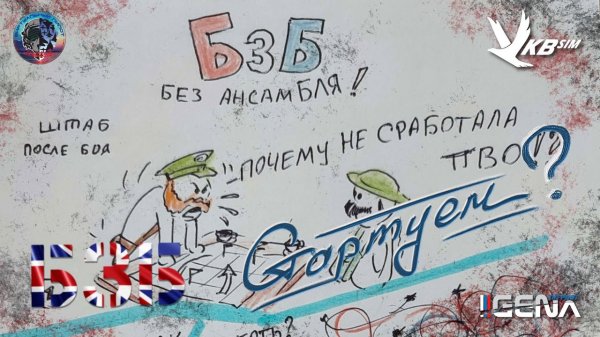 БЗБ
KB SIM
БЕЗ АНСАМБЛЯ!
ШТАБ
ПОСЛЕ БОЯ
ПОЧЕМУ НЕ СРАБОТАЛА
ПВО!?
Стартуем?
БЗБ
GENA